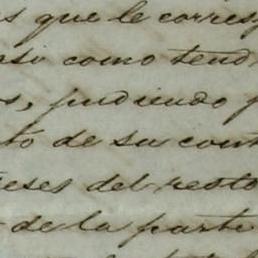 s que le corresp
asi como tend
s, pudiendo p
to de su cont
eses del resto
de la parte